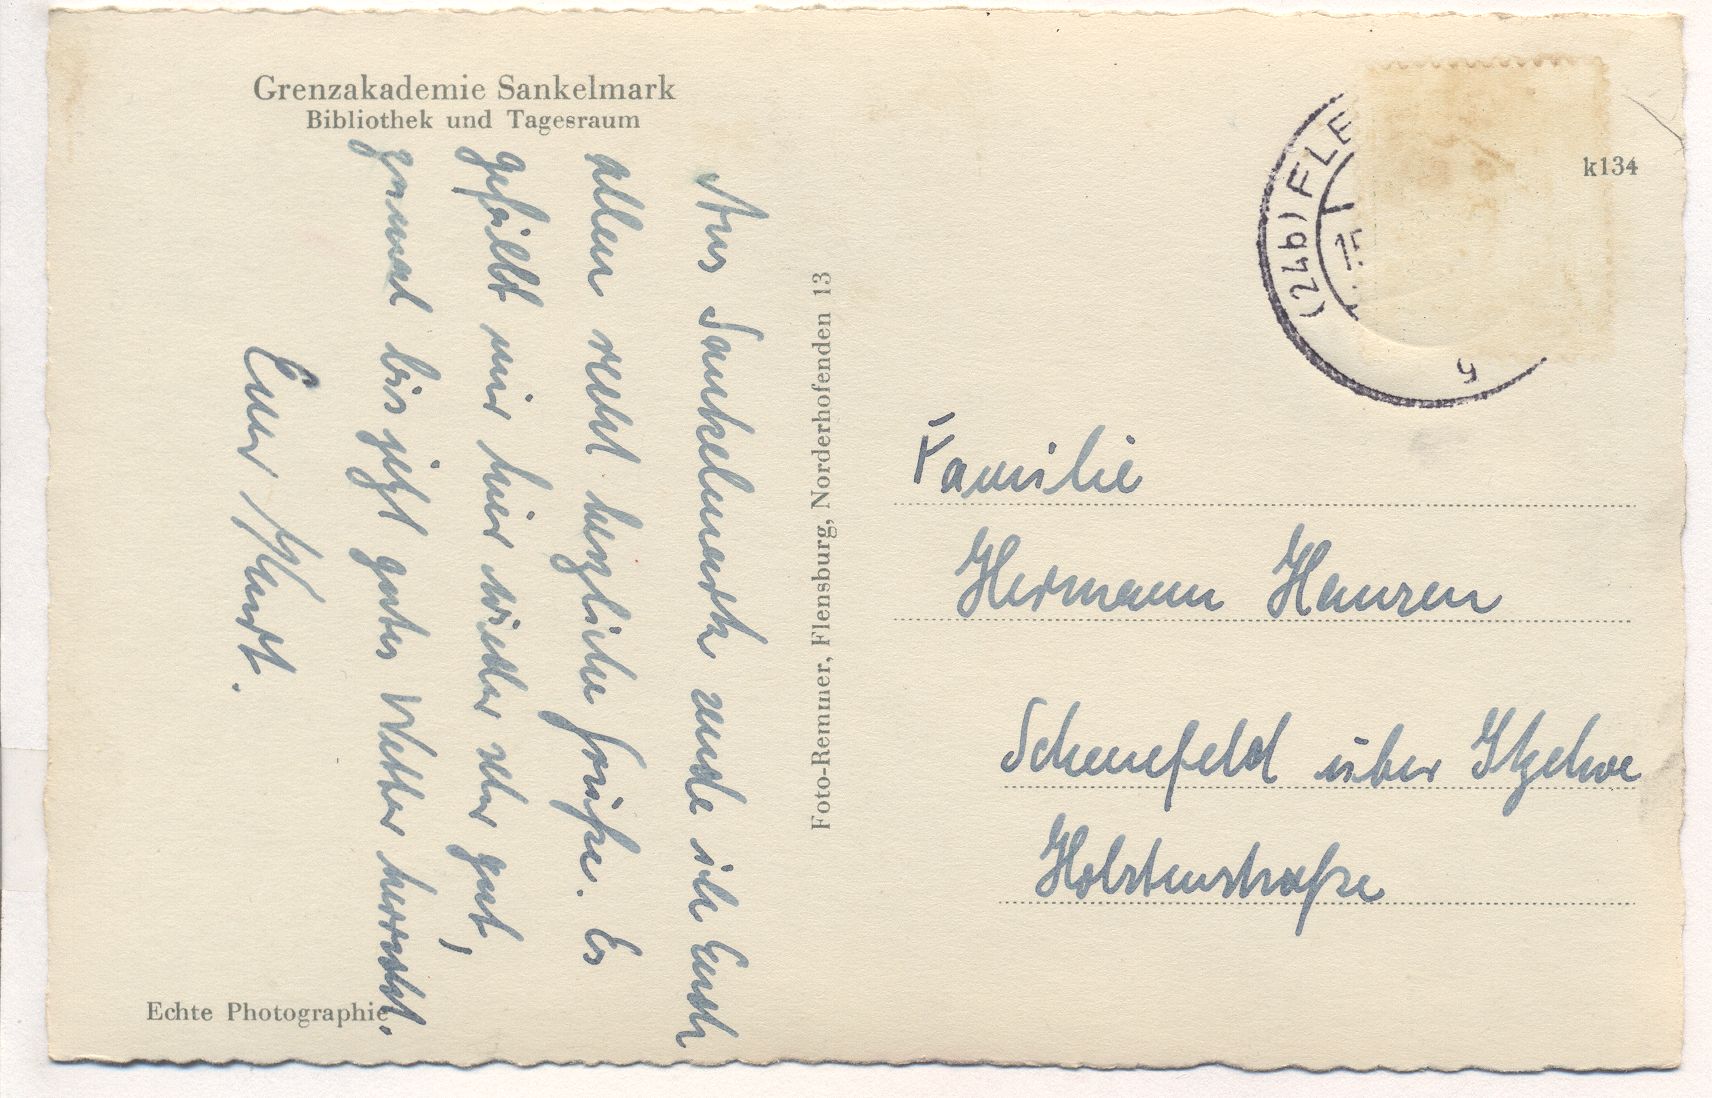 Grenzakademie Sankelmark
Bibliothek und Tagesraum
Aus Sankelmark sende ich Euch
allen recht herzliche Grüße. Es
gefällt mir hier wieder sehr gut,
zumal bis jetzt gutes Wetter herrscht.
Euer Kurt.
Echte Photographie
Foto-Remmer, Flensburg, Norderhofenden 13
(24b) FLE
k134
Familie
Hermann Hansen
Schenefeld über Itzehoe
Holstenstraße